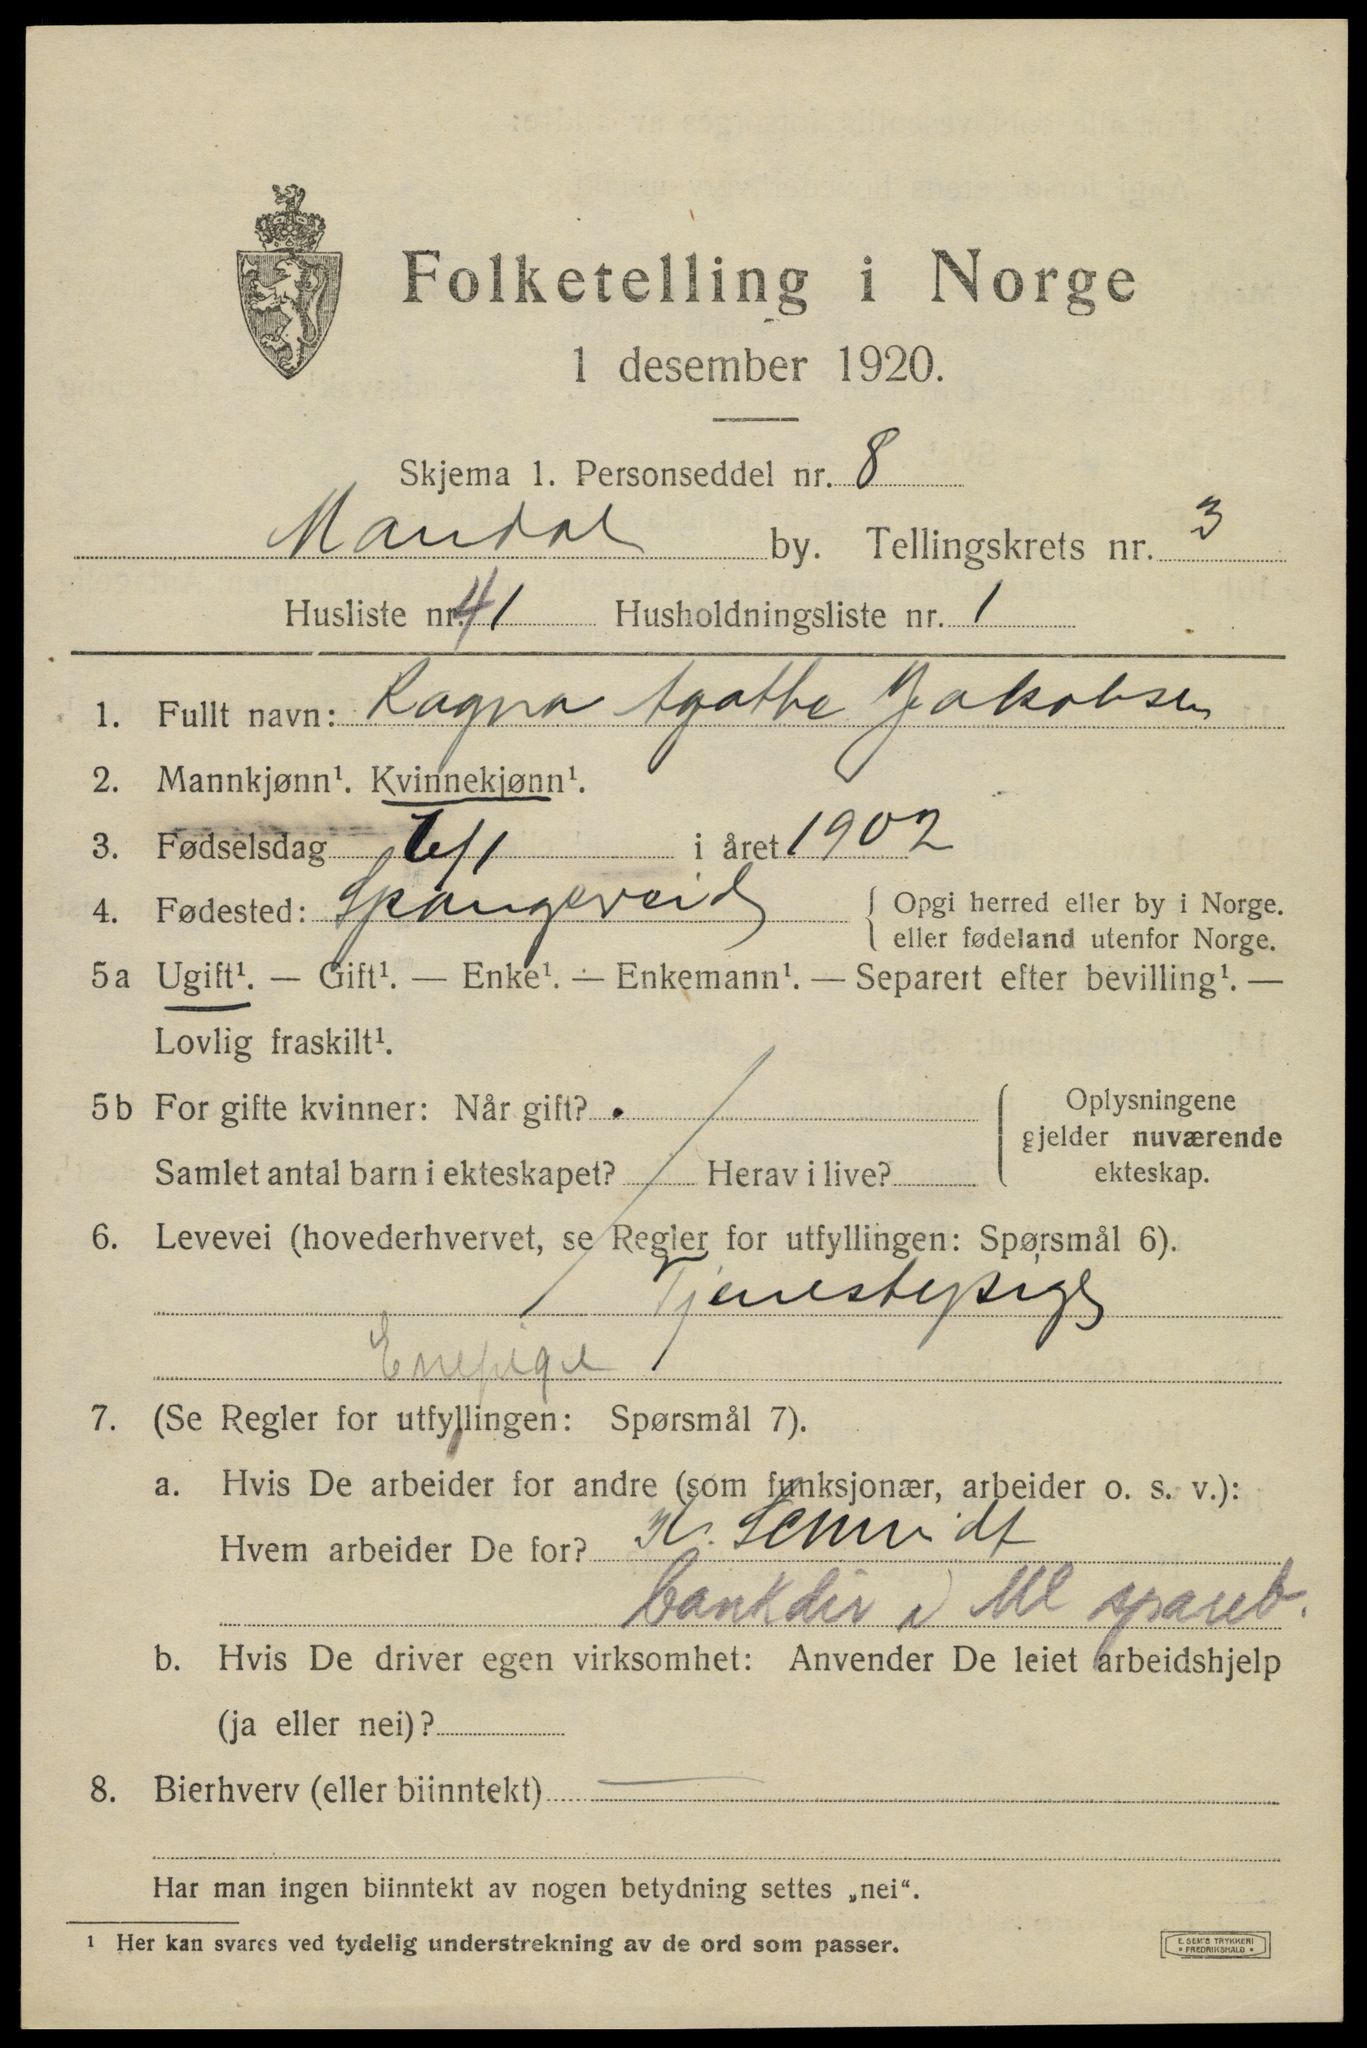 Folketelling i Norge
1 desember 1920.
Skjema 1. Personseddel nr. 8
Mandal by. Tellingskrets nr. 3
Husliste nr. 41 Husholdningsliste nr. 1
1. Fullt navn: Ragna Agathe Jakobsen
2. Mannkjønn¹. Kvinnekjønn¹.
3. Fødselsdag /1 i året 1902
4. Fødested: Spangereid { Opgi herred eller by i Norge.
eller fødeland utenfor Norge.
5a Ugift¹. — Gift¹. — Enke¹. — Enkemann¹. — Separert efter bevilling¹. —
Lovlig fraskilt¹.
5b For gifte kvinner: Når gift?
Samlet antal barn i ekteskapet? Herav i live?
{ Oplysningene
gjelder nuværende
ekteskap.
6. Levevei (hovederhvervet, se Regler for utfyllingen: Spørsmål 6).
Tjenestepige
Enepige
7. (Se Regler for utfyllingen: Spørsmål 7).
a. Hvis De arbeider for andre (som funksjonær, arbeider o. s. v.):
Hvem arbeider De for? Schmidt
bankdir i Ml spareb.
b. Hvis De driver egen virksomhet: Anvender De leiet arbeidshjelp
(ja eller nei)?
8. Bierhverv (eller biinntekt) —
Har man ingen biinntekt av nogen betydning settes „nei“.
¹ Her kan svares ved tydelig understrekning av de ord som passer.
E. SEM'S TRYKKERI
• FREDRIKSHALD •